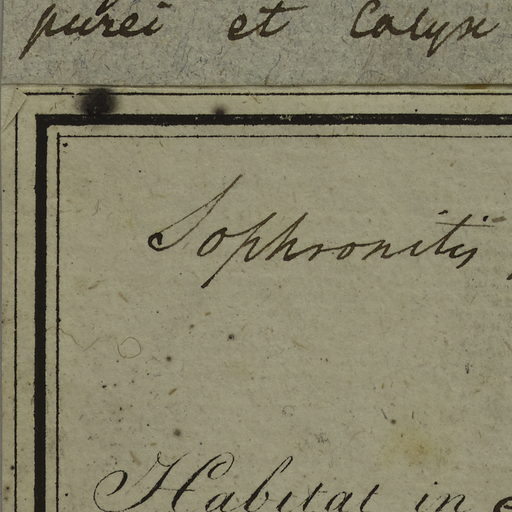 purei et Calyx
Sophronitis
Habitat in